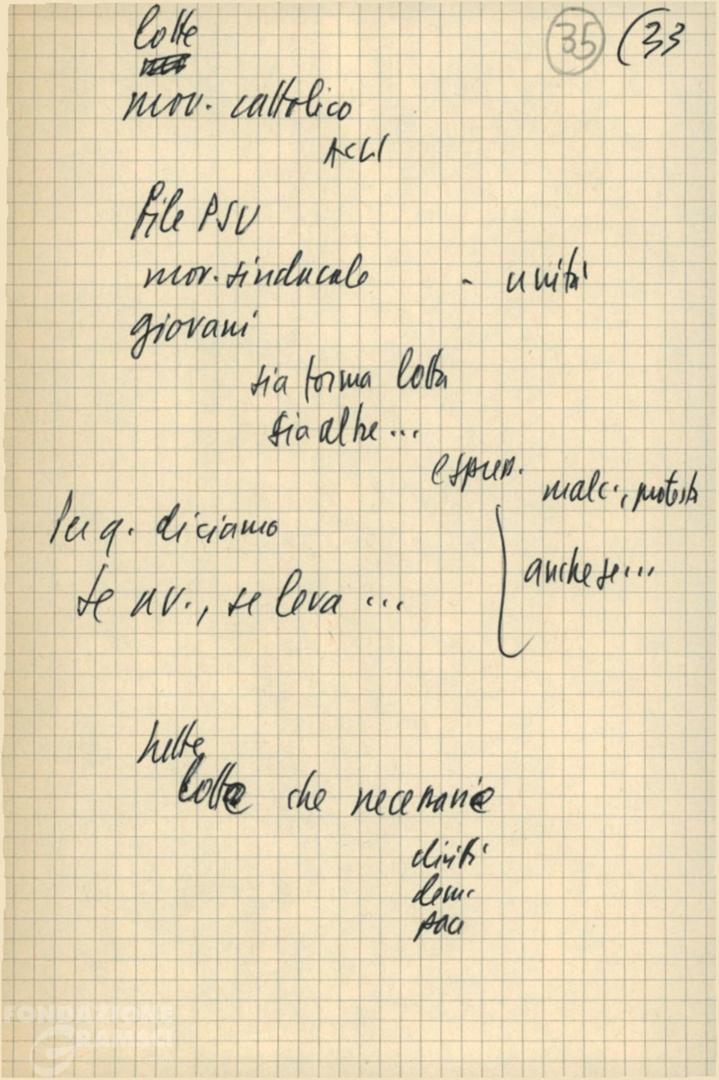 35 (33
lotte
mov. cattolico
ACLI
file PSU
mov. sindacale - unità
giovani
sia forma lotta
sia altre...
espress.
malc., protesta
Per q. diciamo
anche se...
se av., se leva ...
tutte
lotte che necessarie
diritti
dem.
pace
FONDAZIONE
GRAMSCI